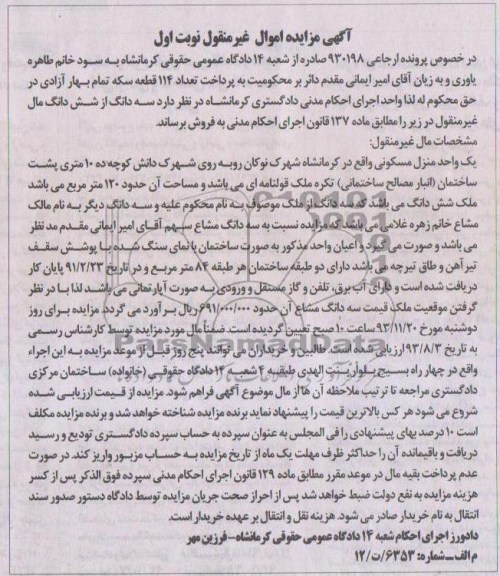 آگهی مزایده اموال غیرمنقول نوبت اول
در خصوص پرونده ارجاعی ۹۳۰۱۹۸ صادره از شعبه ۱۴ دادگاه عمومی حقوقی کرمانشاه به سود خانم طاهره
یاوری و به زیان آقای امیر ایمانی مقدم دائر بر محکومیت به پرداخت تعداد ۱۱۴ قطعه سکه تمام بهار آزادی در
حق محکوم له لذا واحد اجرای احکام مدنی دادگستری کرمانشاه در نظر دارد سه دانگ از شش دانگ مال
غیرمنقول در زیر را مطابق ماده ۱۳۷ قانون اجرای احکام مدنی به فروش برساند.
مشخصات مال غیرمنقول:
یک واحد منزل مسکونی واقع در کرمانشاه شهرک نوکان روبه روی شهرک دانش کوچه ده ۱۰ متری پشت
ساختمان (انبار مصالح ساختمانی) نکره ملک قولنامه ای می باشد و مساحت آن حدود ۱۲۰ متر مربع می باشد
ملک شش دانگ می باشد که سه دانگ از ملک موصوف به نام محکوم علیه و سه دانگ دیگر به نام مالک
مشاع خانم زهره غلامی می باشد که مزایده نسبت به سه دانگ مشاع سهم آقای امیر ایمانی مقدم مد نظر
می باشد و صورت می گیرد و اعیان واحد مذکور به صورت ساختمان با نمای سنگ شده با پوشش سقف
تیر آهن و طاق تیرچه می باشد دارای دو طبقه ساختمان هر طبقه ۸۴ متر مربع و در تاریخ ۹۱/۲/۲۳ پایان کار
دریافت شده است و دارای آب برق، تلفن و گاز مستقل و ورودی به صورت آپارتمانی می باشد لذا با در نظر
گرفتن موقعیت ملک قیمت سه دانگ مشاع آن حدود ۶۹۱/۰۰۰/۰۰۰ ریال برآورد می گردد. مزایده برای روز
دوشنبه مورخ ۹۳/۱۱/۲۰ ساعت ۱۰ صبح تعیین گردیده است. ضمناً مال مورد مزایده توسط کارشناس رسمی
به تاریخ ۹۳/۸/۳ ارزیابی شده است. طالبین و خریداران می توانند پنج روز قبل از موعد مزایده به این اجراء
واقع در چهار راه بسیج بلوار بنت الهدی طبقه ۴ شعبه ۱۴ دادگاه حقوقی (خانواده) ساختمان مرکزی
دادگستری مراجعه تا ترتیب ملاحظه آن ها از مال موضوع آگهی فراهم شود. مزایده از قیمت ارزیابی شده
شروع می شود هر کس بالاترین قیمت را پیشنهاد نماید برنده مزایده شناخته خواهد شد و برنده مزایده مکلف
است ۱۰ درصد بهای پیشنهادی را فی المجلس به عنوان سپرده به حساب سپرده دادگستری تودیع و رسید
دریافت و باقیمانده آن را حداکثر ظرف مهلت یک ماه از تاریخ مزایده به حساب مزبور واریز کند. در صورت
عدم پرداخت بقیه مال در موعد مقرر مطابق ماده ۱۲۹ قانون اجرای احکام مدنی سپرده فوق الذکر پس از کسر
هزینه مزایده به نفع دولت ضبط خواهد شد پس از احراز صحت جریان مزایده توسط دادگاه دستور صدور سند
انتقال به نام خریدار صادر می شود. هزینه نقل و انتقال بر عهده خریدار است.
دادورز اجرای احکام شعبه ۱۴ دادگاه عمومی حقوقی کرمانشاه-فرزین مهر
م الف-شماره: ۶۳۵۳/ت/۱۲
ParsNamadData